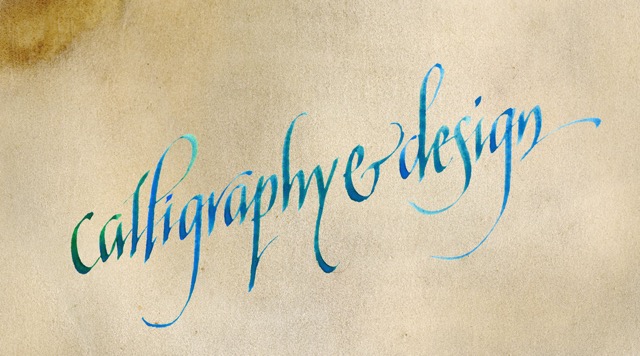 calligraphy & design